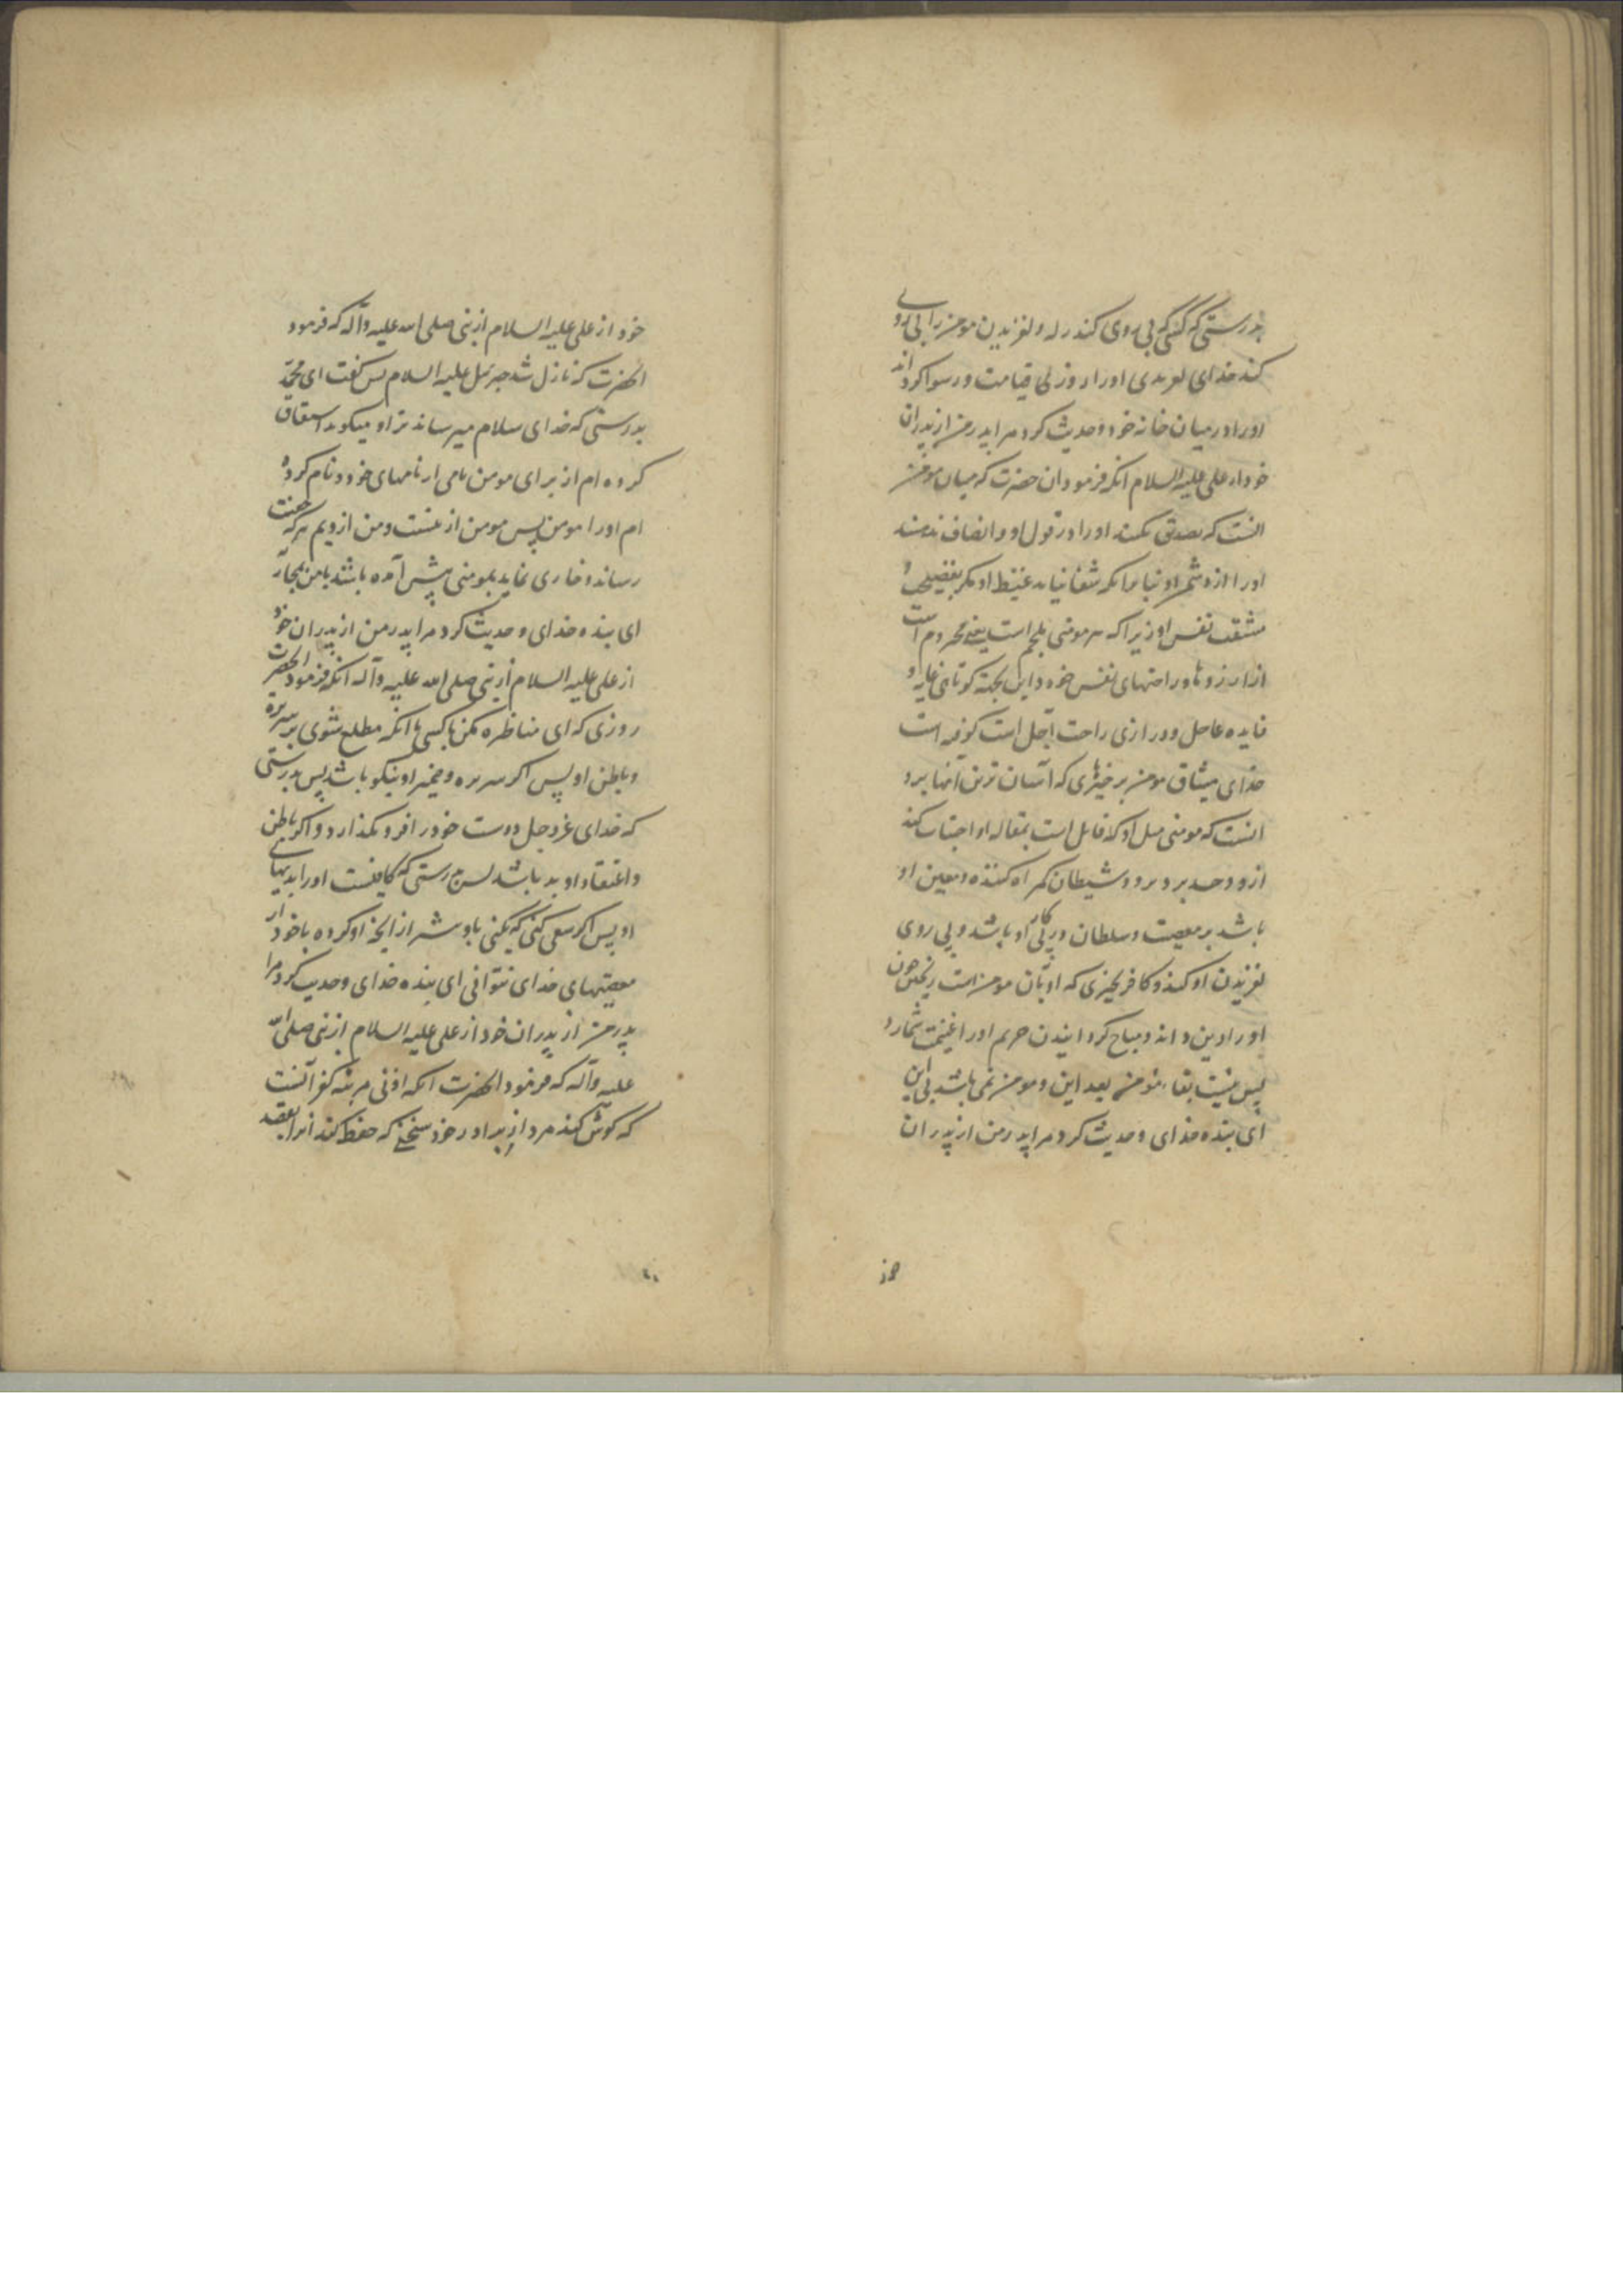 بدرستی که کسی که پی روی کند زله و لغزیدن مومن را پی روی
کند خدای لغزیدن او را روز قیامت و رسوا گرداند
او را در میان خانه خود و حدیث کرد مرا پدر من از پدران
خود از علی علیه السلام انکه فرمود ان حضرت که میان مومن
انست که تصدیق نکنند او را در قول او و انصاف ندهند
او را از دشمن او و شفا نیابد غیظ او مکر بفضیحت
مشقت نفس او زیرا که هر مومنی ملجم است یعنی محروم است
از ارزوها و راحتهای نفس خود و این بجهة کوتاهی غایت و
فایده عاجل و درازی راحت اجل است گرفته است
خدای میثاق مومن بر چیزهای که آسان ترین آنها برو
انست که مومنی مثل او که قائل است بمقاله او اجتناب کند
ازو و حسد برد برو و شیطان گمراه کننده و معین او
باشد بر معصیت و سلطان در پی کار او باشد و پی روی
لغزیدن او کند و کافر بچیزی که او بآن مومن است ریختن خون
او را دین داند و مباح گردانیدن حریم او را غنیمت شمارد
پس نیست بقاء مومن بعد این و مومن نمی باشد بی این
ای بنده خدای و حدیث کرد مرا پدر من از پدران
خود از علی علیه السلام از نبی صلی الله علیه وآله که فرمود
انحضرت که نازل شد جبرئیل علیه السلام پس گفت ای محمد
بدرستی که خدای سلام میرساند ترا و میکوید اشتقاق
کرده ام از برای مومن نامی از نامهای خود و نام کرده
ام او را مومن پس مومن از منست و من از ویم هر که محنت
رساند و خاری نماید بمومنی پیش آمده باشد با من بمحاربه
ای بنده خدای و حدیث کرد مرا پدر من از پدران خود
از علی علیه السلام از نبی صلی الله علیه وآله انکه فرمود انحضرت
روزی که ای مناظره مکن با کسی تا انکه مطلع شوی بر سریره
و باطن او پس اکر سریره و ضمیر او نیکو باشد پس بدرستی
که خدای عزوجل دوست خود را فرو نگذارد و اکر باطن
و اعتقاد او بد باشد پس بدرستی که کافیست او را بدیهای
او پس اکر سعی کنی که بکنی باو شر از انچه او کرده با خود از
معصیتهای خدای نتوانی ای بنده خدای و حدیث کرد مرا
پدر من از پدران خود از علی علیه السلام از نبی صلی الله
علیه وآله که فرمود انحضرت انکه ادنی مرتبه کفر آنست
که گوش کند مرد از برادر خود سخنی که حفظ کند انرا بقصد